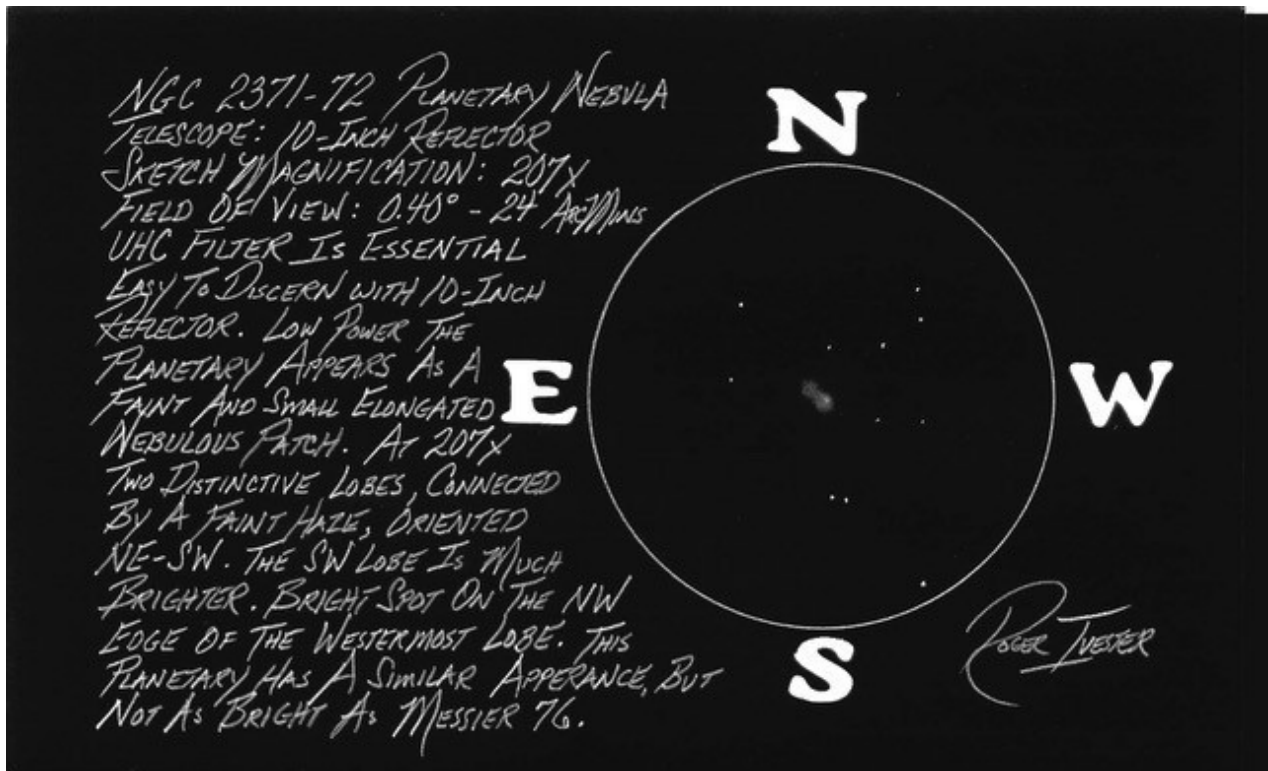 NGC 2371-72 PLANETARY NEBULA
TELESCOPE: 10-INCH REFLECTOR
SKETCH MAGNIFICATION: 207X
FIELD OF VIEW: 0.40° - 24 ARCMINS
UHC FILTER IS ESSENTIAL
EASY TO DISCERN WITH 10-INCH
REFLECTOR. LOW POWER THE
PLANETARY APPEARS AS A
FAINT AND SMALL ELONGATED
NEBULOUS PATCH. AT 207X
TWO DISTINCTIVE LOBES, CONNECTED
BY A FAINT HAZE, ORIENTED
NE-SW. THE SW LOBE IS MUCH
BRIGHTER. BRIGHT SPOT ON THE NW
EDGE OF THE WESTERMOST LOBE. THIS
PLANETARY HAS A SIMILAR APPERANCE, BUT
NOT AS BRIGHT AS MESSIER 76.
N
E
W
S
ROGER IVESTER